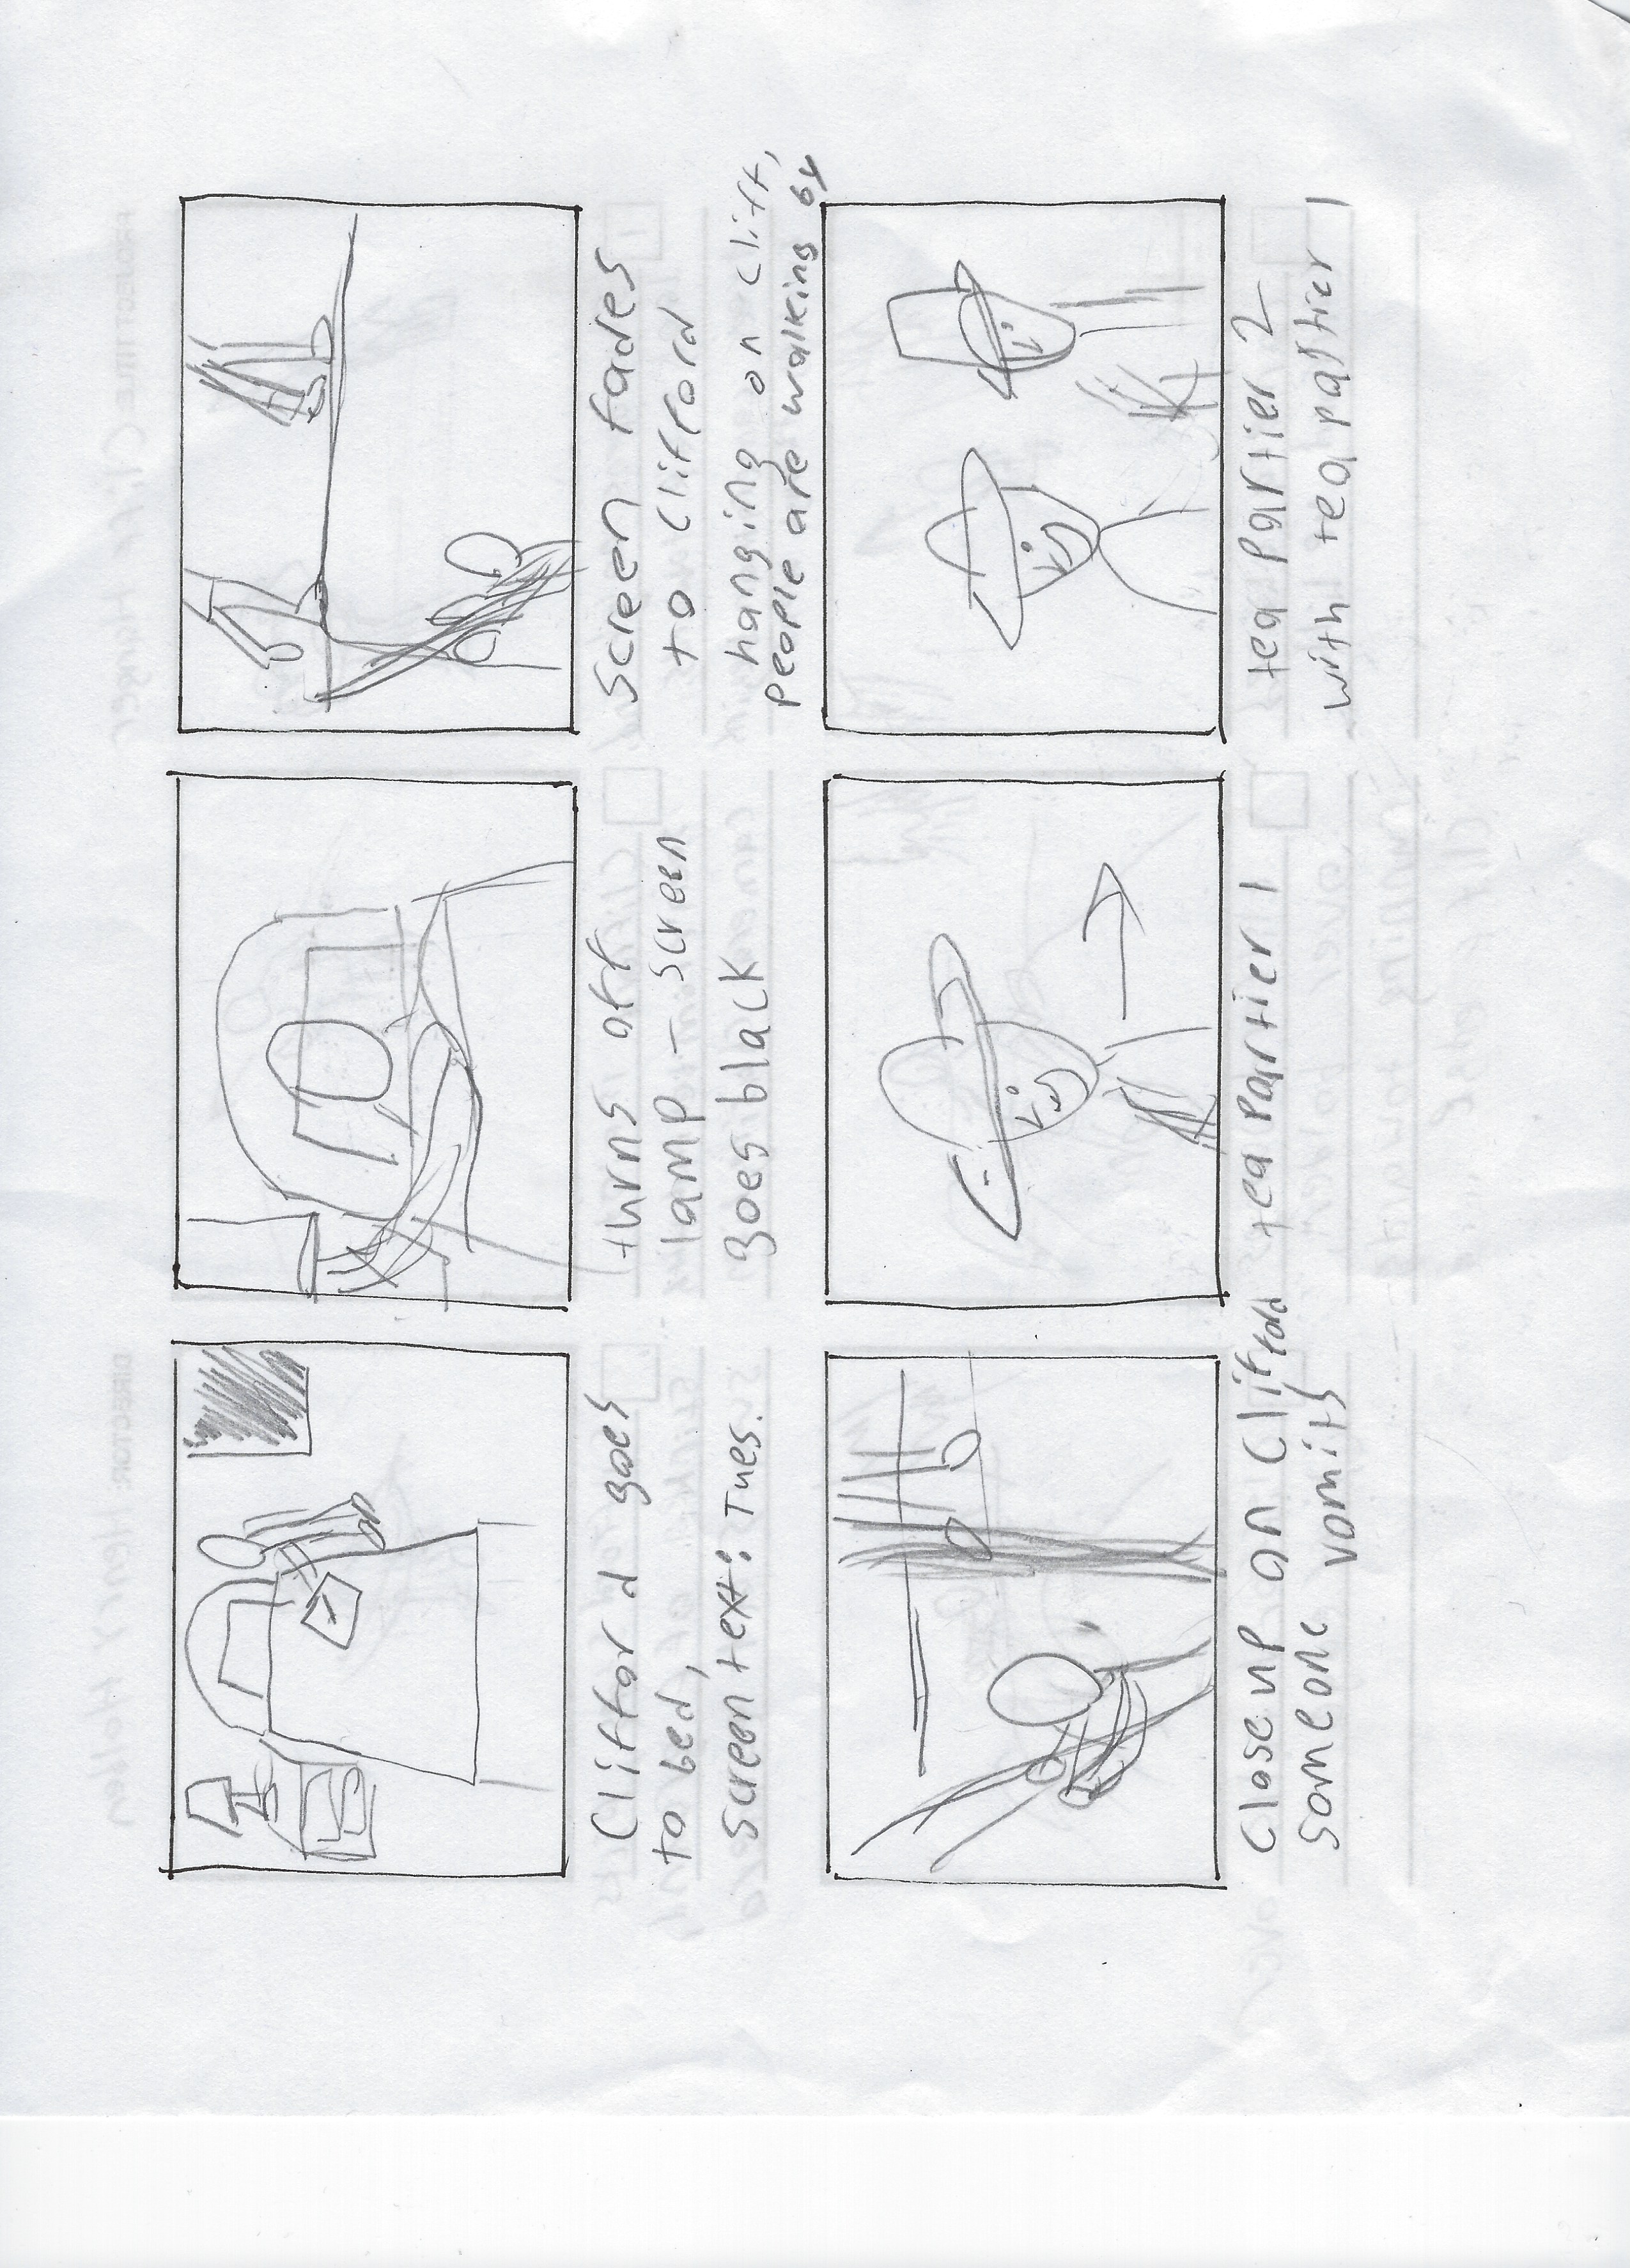 Clifford goes
to bed,
Screen text: Tues.
turns off
lamp - screen
goes black
Screen fades
to Clifford
hanging on cliff,
people are walking by
Close up on Clifford
Someone vomits
tea Partier 1
tea Partier 2
with tea partier 1